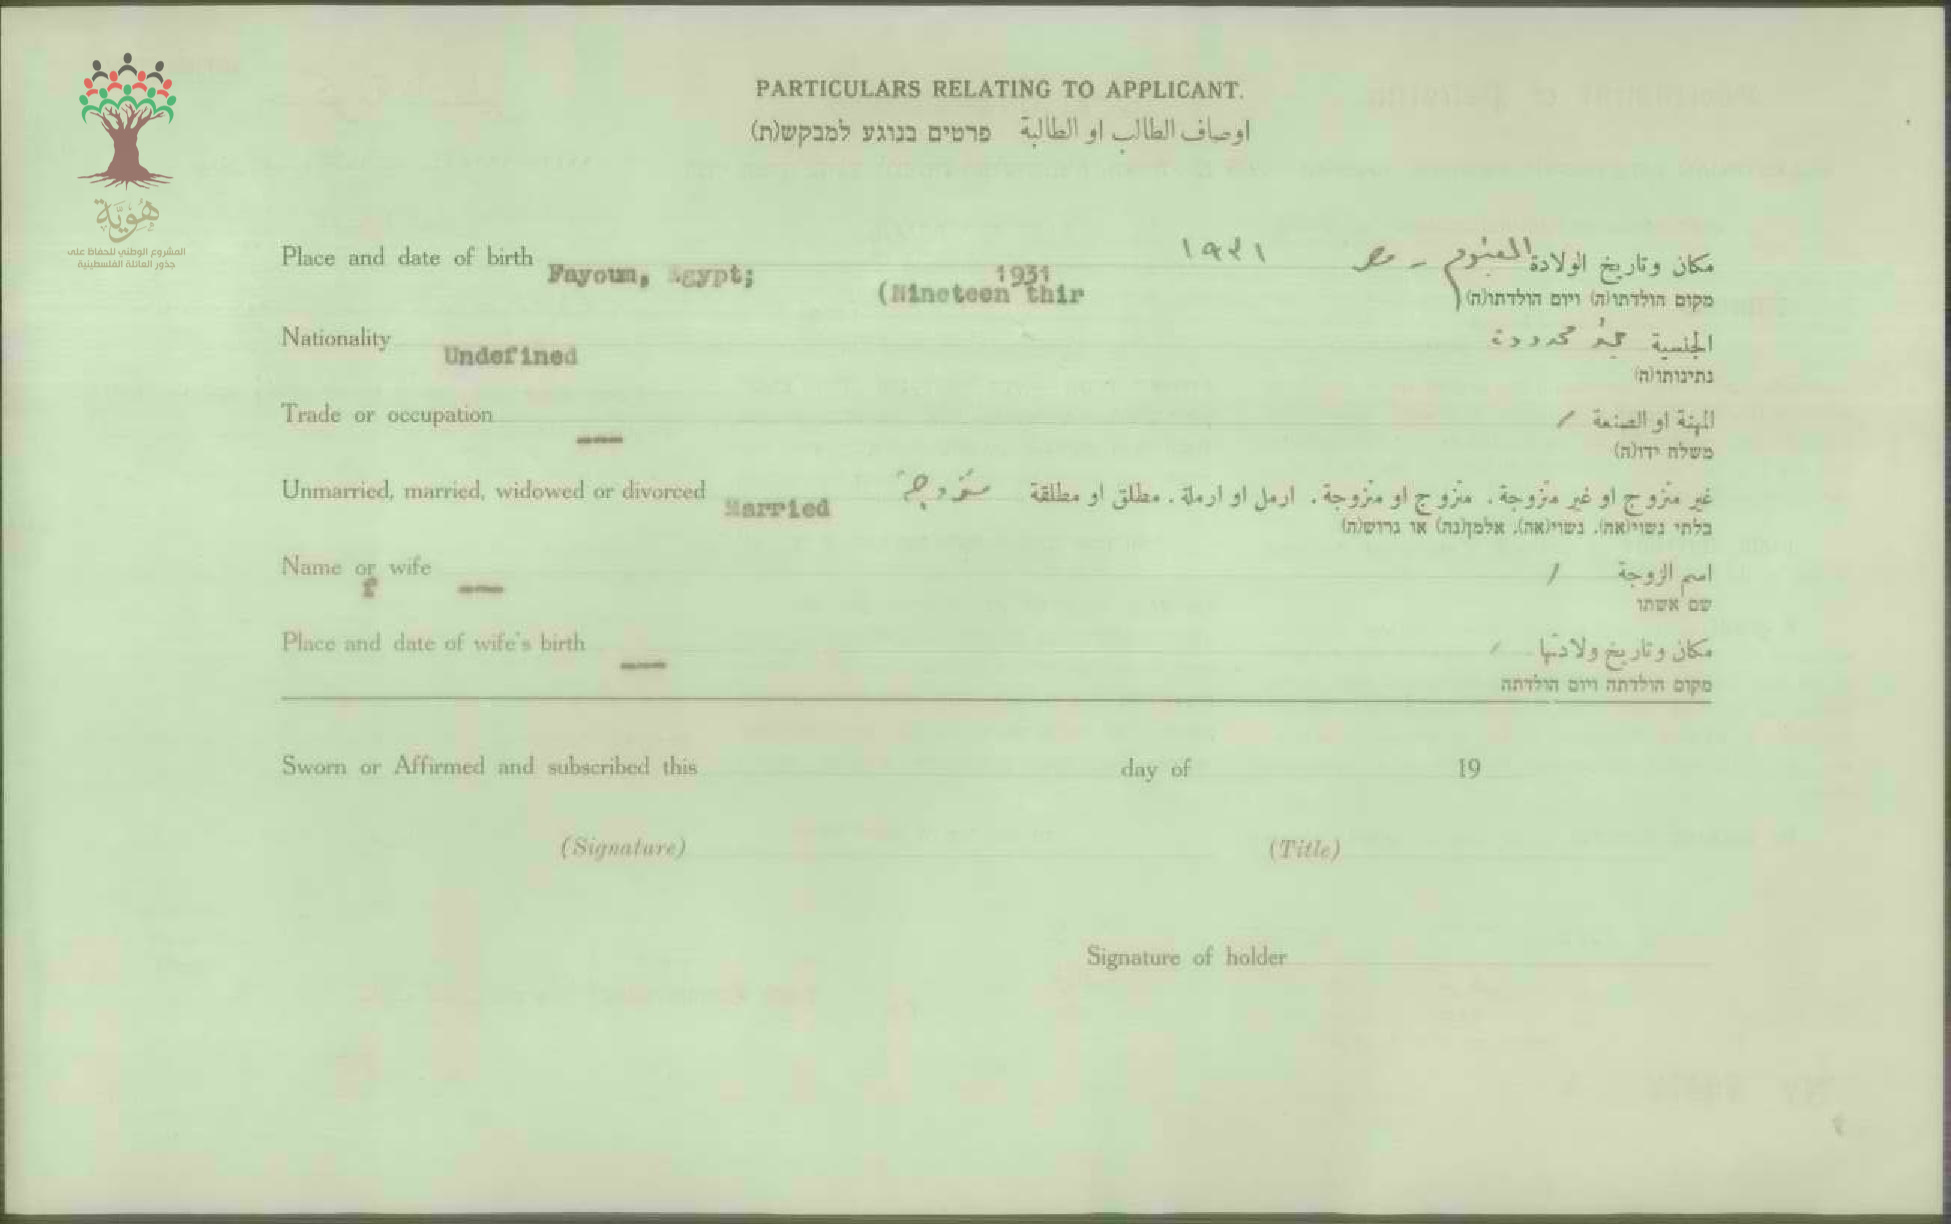 هُوِيَّة
المشروع الوطني للحفاظ على
جذور العائلة الفلسطينية
PARTICULARS RELATING TO APPLICANT.
اوصاف الطالب او الطالبة פרטים בנוגע למבקש(ת)
Place and date of birth Fayoum, Egypt; 1931 ١٩٣١ الفيوم - مصر مكان وتاريخ الولادة
(Nineteen thir
מקום הולדתו(ה) ויום הולדתו(ה)
Nationality Undefined غير محدودة الجنسية
נתינותו(ה)
Trade or occupation --- / المهنة او الصنعة
משלח ידו(ה)
Unmarried, married, widowed or divorced Married متزوجة غير متزوج او غير متزوجة. متزوج او متزوجة. ارمل او ارملة. مطلق او مطلقة
בלתי נשוי(אה). נשוי(אה). אלמן(נה) או גרוש(ה)
Name or wife --- / اسم الزوجة
f
שם אשתו
Place and date of wife's birth --- / مكان وتاريخ ولادتها
מקום הולדתה ויום הולדתה
Sworn or Affirmed and subscribed this day of 19
(Signature) (Title)
Signature of holder